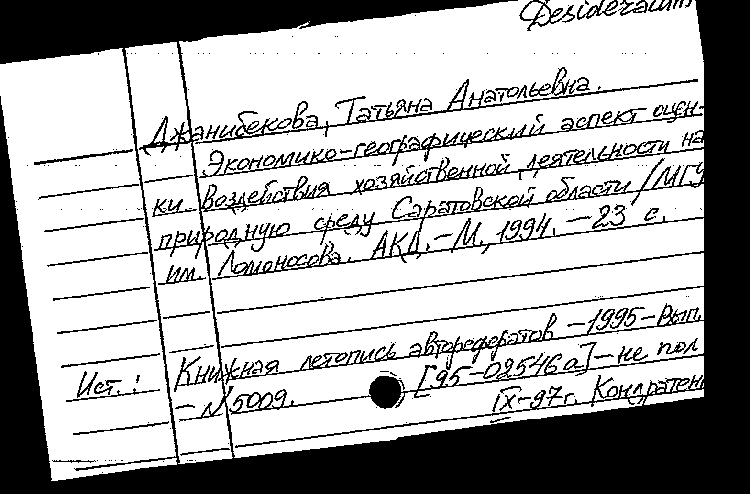 Desideratum
Джанибекова, Татьяна Анатольевна.
Экономико-географический аспект оцен-
ки воздействия хозяйственной деятельности на
природную среду Саратовской области /МГУ
им. Ломоносова. АКД. – М., 1994. – 23 с.
Ист.: Книжная летопись авторефератов – 1995 – Вып.
– №5009. [95-02546а] – не пол
IX-97г. Кондратен